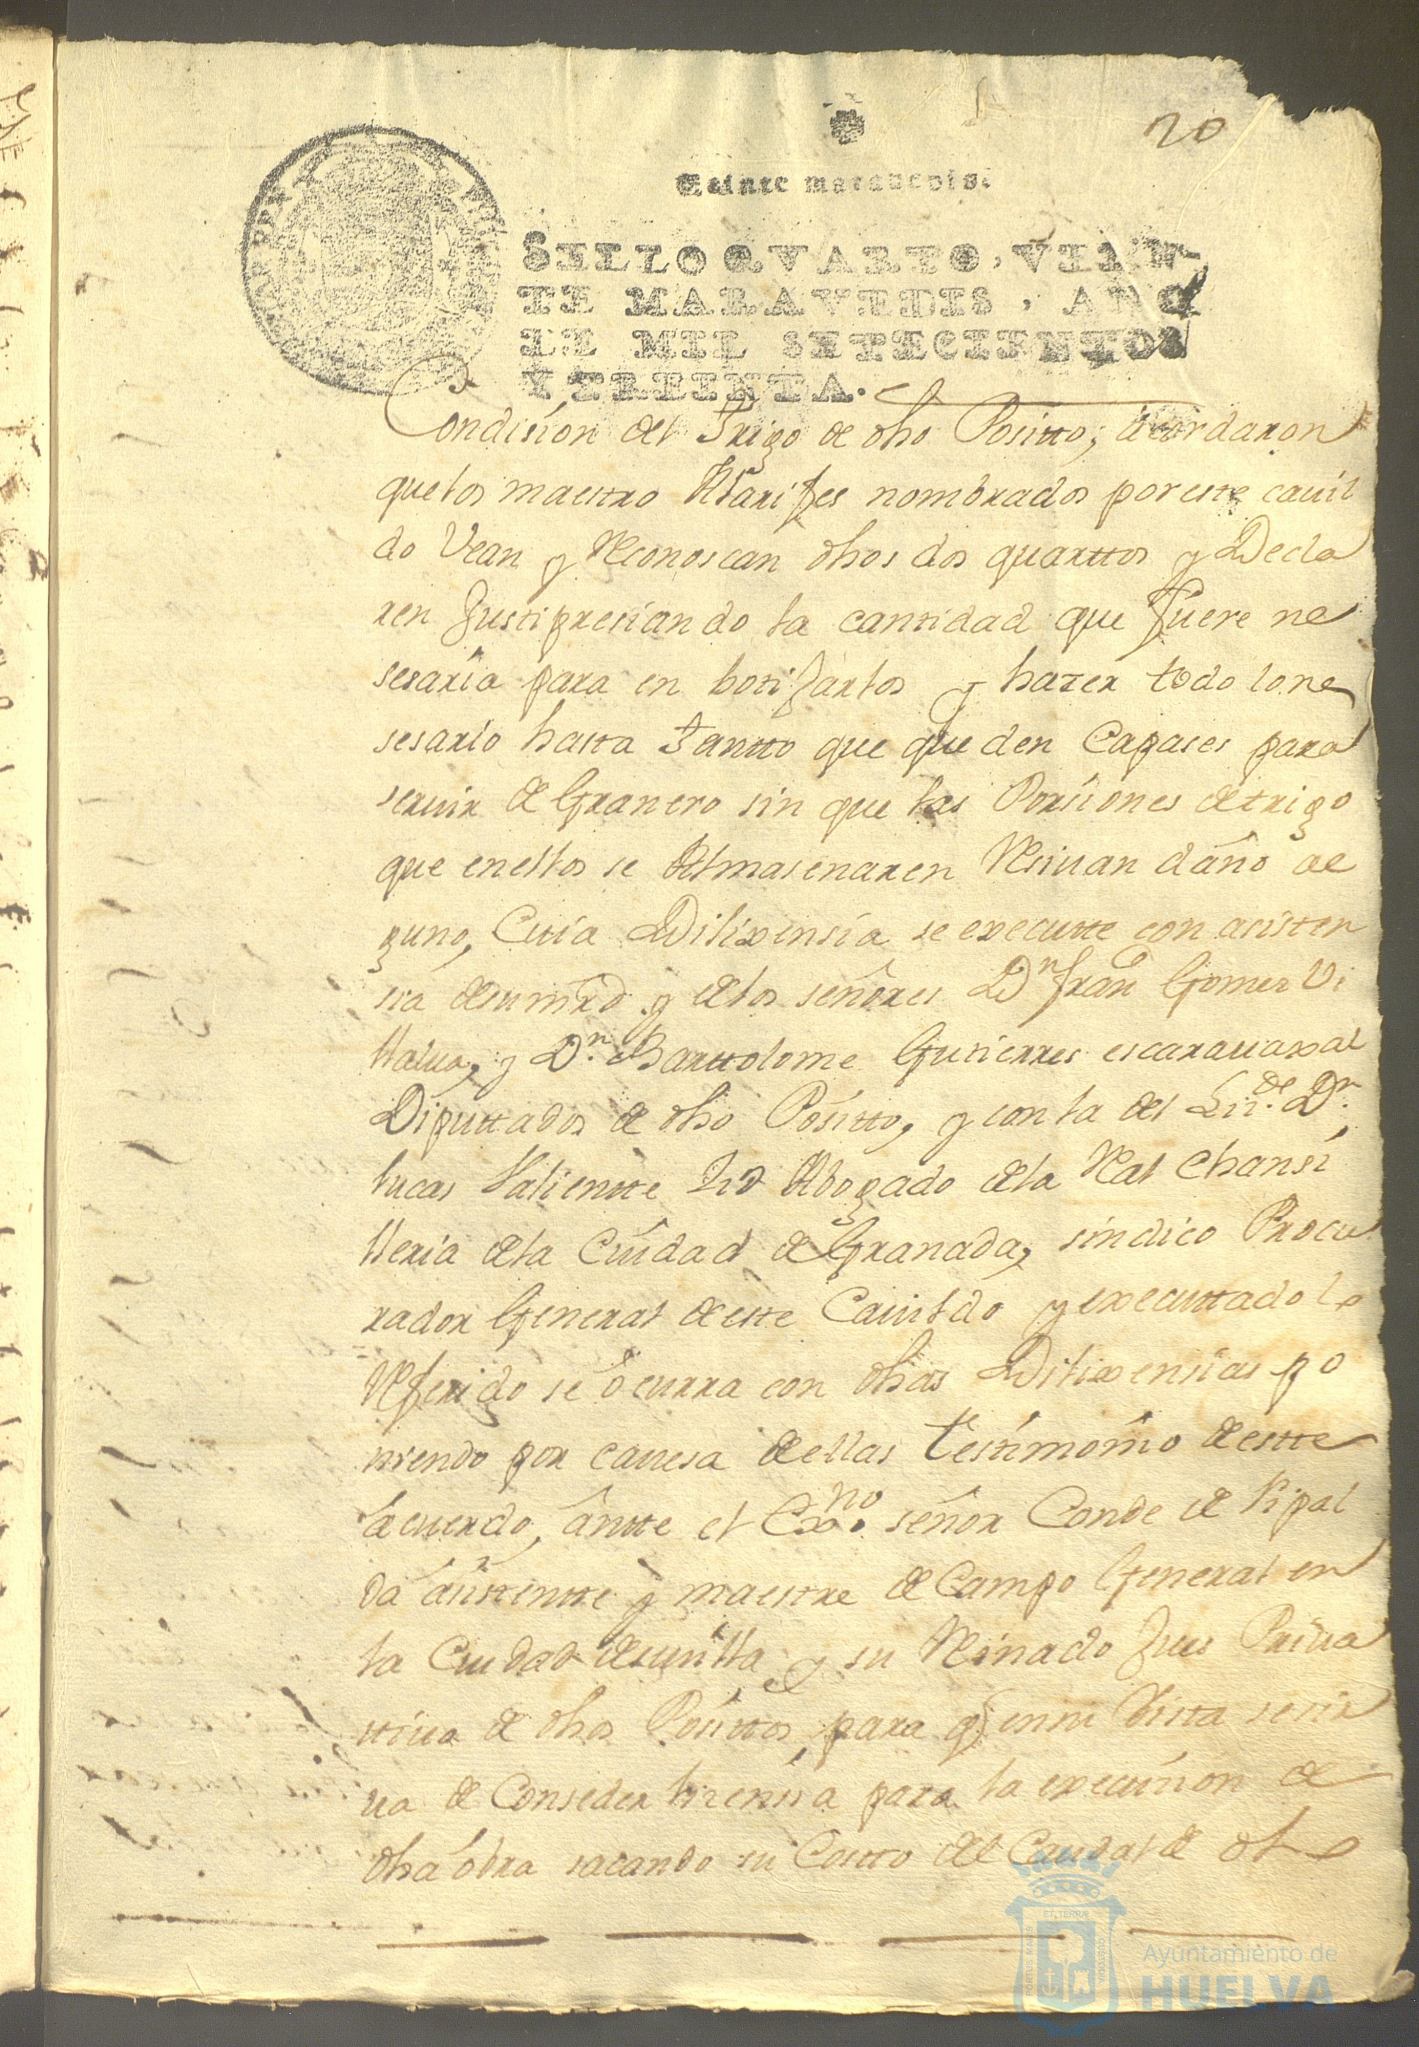 20
Veinte maravedis.
SELLO QVARTO, VEIN-
TE MARAVEDIS, AÑO
DE MIL SETECIENTOS
Y TREINTA.
Condision del Trigo de dho Positto, acordaron
que los maestro Alarifes nombrados por este cauil
do Vean y Reconoscan dhos dos quarttos y Decla
ren Justipresiando la cantidad que fuere ne
sesaria para en botifarlos y hazer todo lo ne
sesario hasta tantto que queden Capases para
seruir de Granero sin que las Porsiones de trigo
que en ellos se Almasenaren Resiuan daño al
guno, Cuia Dilixensia se executte con asisten
sia de su mrd y de los señores Dn Franco Gomez Vi
llalua, y Dn. Barttolome Gutierres escarauaxal
Diputtados de dho Positto, y con la del Lizdo. Dn.
lucas Valientte Abogado de la Real Chansi
lleria de la Ciudad de Granada, sindico Procu
rador General de este Cauildo y executtado lo
Referido se ocurra con dhas Dilixensias po
niendo por cauesa de ellas testimonio de estte
acuerdo, antte el Exmo. señor Conde de Ripal
da asistentte y maestre de Campo General en
la Ciudad de seuilla y su Reinado Jues Priua
ttiuo de dhos Posittos, para q en su Vista se sir
ua de Conseder lizensia para la execusion de
dha obra sacando su Costto del Caudal de dho
ET TERRAE
Ayuntamiento de
HUELVA